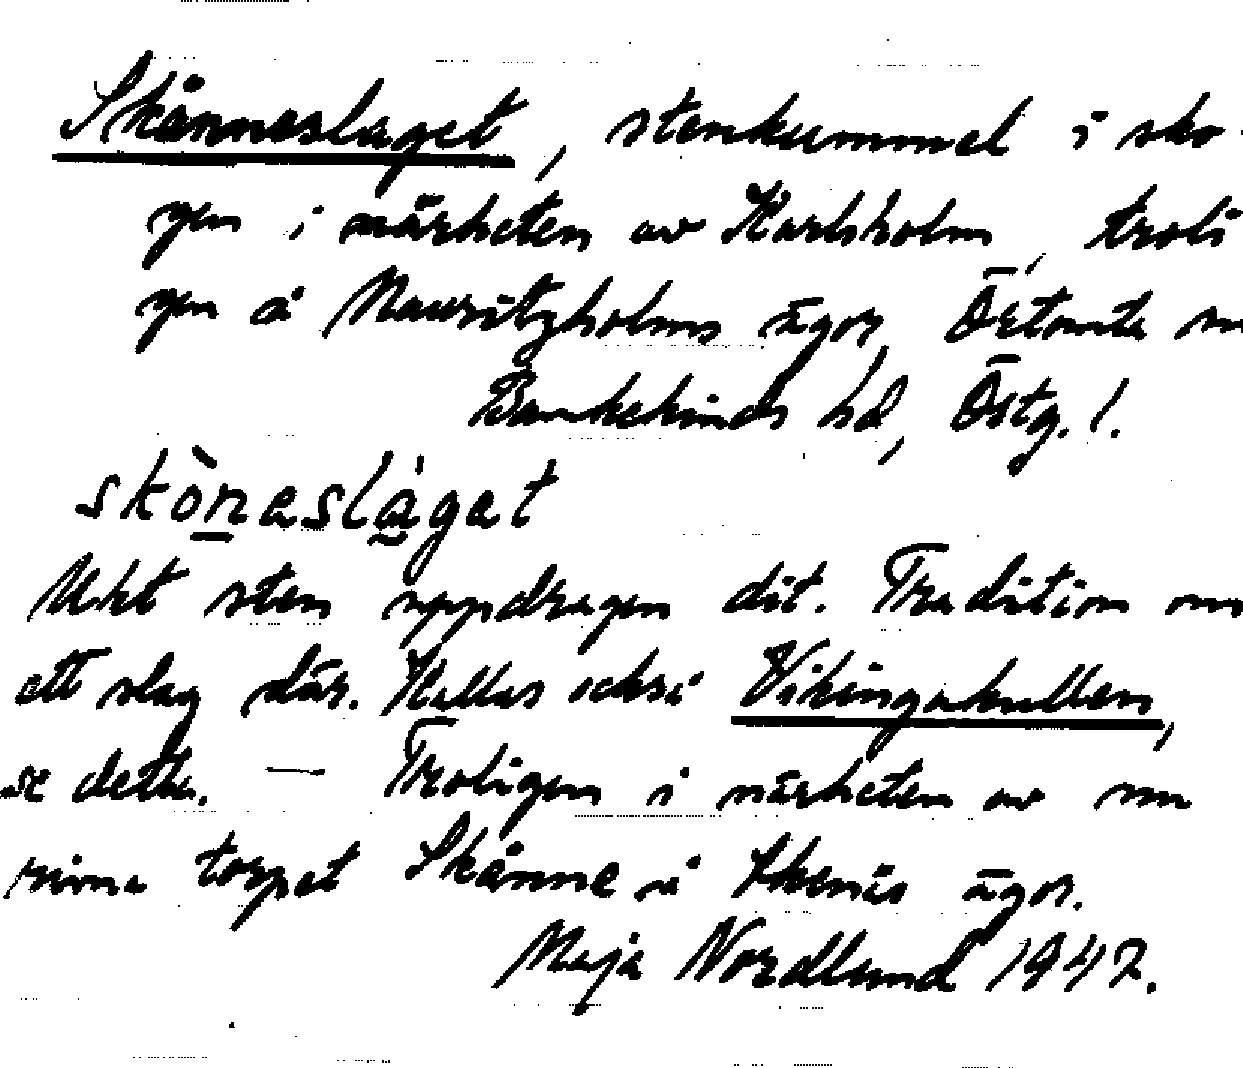 Skånneslaget, stenkummel i sko-
gen i närheten av Karlsholm, troli
gen å Mauritzholms ägor, Östomta sn
Bankekinds hd, Östg. l.
skòneslàget
Ukt sten uppdragen dit. Tradition om
ett slag där. Kallas också Vikingakullen,
se detta. — Troligen i närheten av nu
rivna torpet Skånne å Ekenäs ägor.
Maja Nordlund 1947.